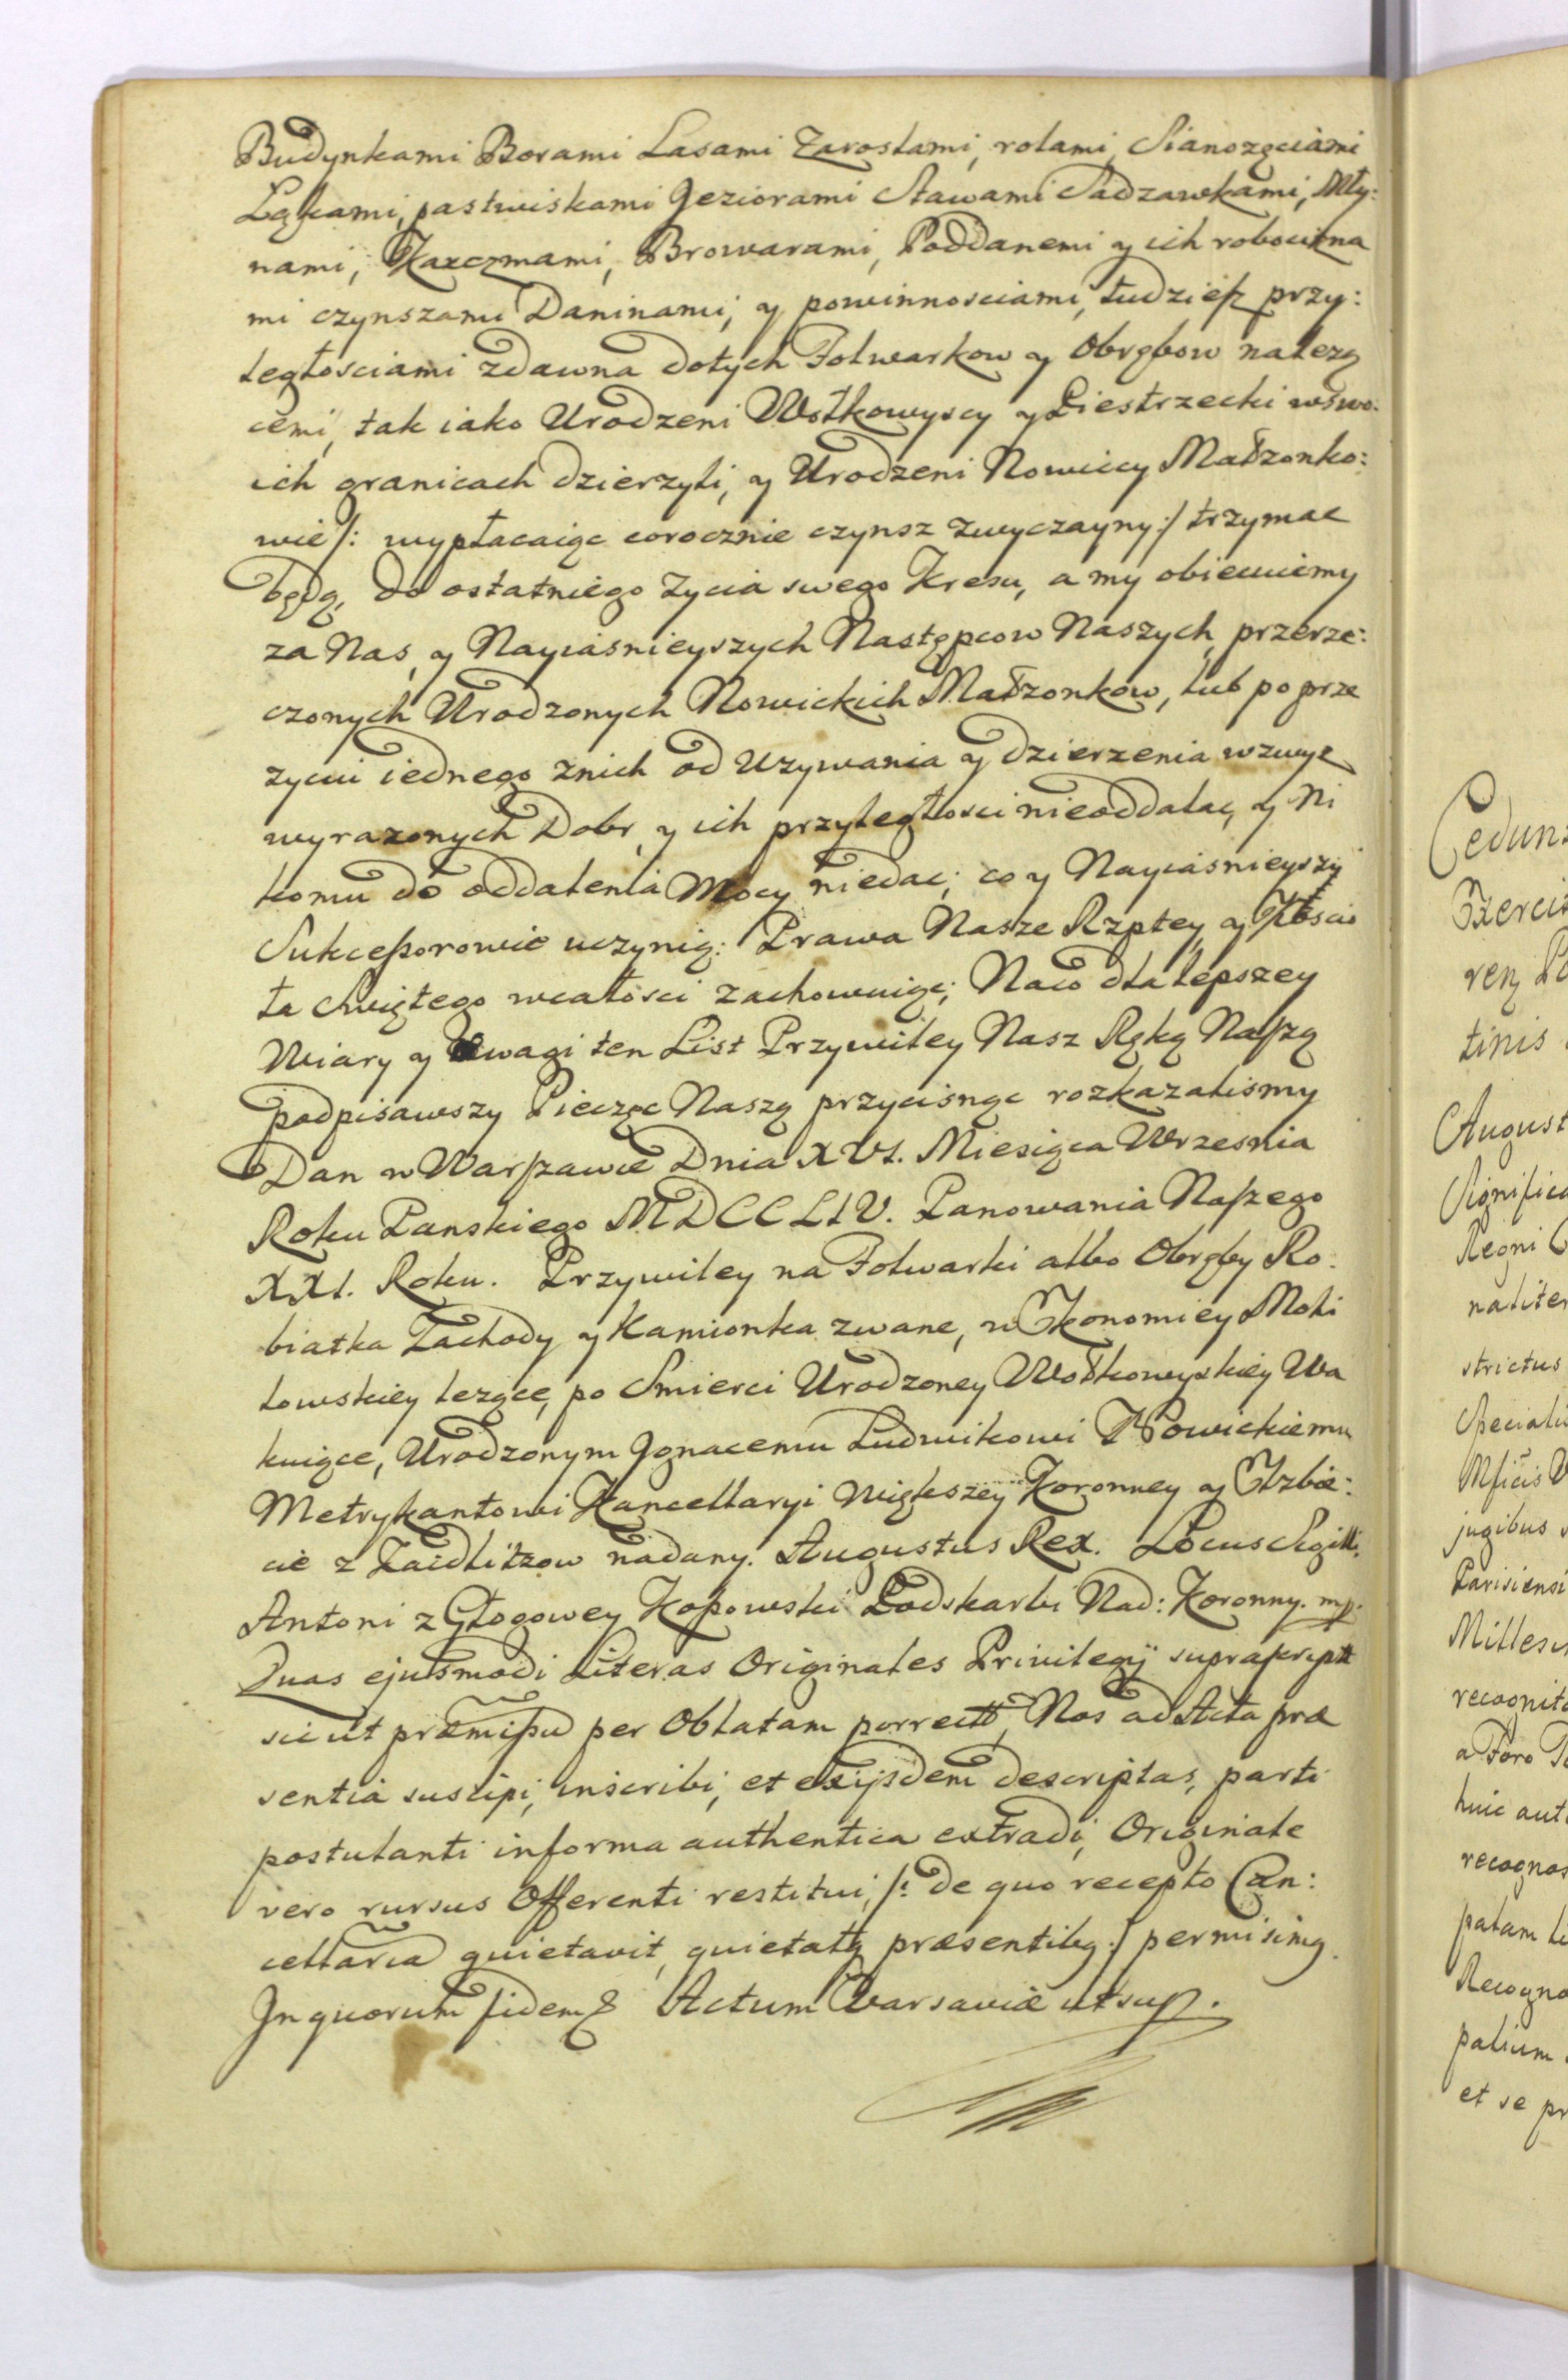 Budynkami Borami Lasami Zaroslami, rolami, Sianozęciami
Łąkami, pastwiskami Jeziorami Stawami Sadzawkami, Mły:
nami, Karczmami, Browarami, Poddanemi y ich robocizna
mi czynszami Daninami, y powinnosciami, tudzież przy:
ległosciami zdawna dotych Folwarkow y Obrębow należą
cemi, tak iako Urodzeni Wołkowyscy y Piestrzecki wswo:
ich granicach dzierzyli, y Urodzeni Nowiccy Małzonko:
wie /: wypłacaiąc corocznie czynsz zwyczayny :/ trzymac
będą, do ostatniego życia swego Kresu, a my obiecuiemy
za Nas, y Nayiasnieyszych Następcow Naszych, przerze:
czonych Urodzonych Nowickich Małzonkow, lub po prze
zyciu iednego znich od Uzywania y dzierzenia wzwyz
wyrazonych Dobr, y ich przyległosci nieoddalac, y Ni
komu do oddalenia Mocy niedac; co y Nayiasnieyszy
Sukceßorowie uczynią: Prawa Nasze Rzptey y Kościo
ła Swiętego wcałosci zachowuiąc; Naco dla lepszey
Wiary y Uwagi ten List Przywiley Nasz Ręką Naszą
podpisawszy Pieczęc Naszą przycisnąc rozkazalismy
Dan w Warszawie Dnia XVI. Miesiąca Wrzesnia
Roku Panskiego MDCCLIV. Panowania Naszego
XXI. Roku. Przywiley na Folwarki albo Obręby Ro:
biatka Zachody y Kamionka zwane, w Ekonomiey Mohi
lowskiey lezące, po Smierci Urodzoney Wołkowyskiey Wa
kuiące, Urodzonym Ignacemu Ludwikowi Nowickiemu
Metrykantowi Kancellaryi Większey Koronney y Elzbie:
cie z Zaidlitzow nadany. Augustus Rex. Locus Sigilli.
Antoni z Głogowey Koßowski Podskarbi Nad: Koronny. mp.
Quas ejusmodi Literas Originales Privilegij suprascript
sicut præmißu per Oblatam porrect, Nos ad Acta præ
sentia suscipi, inscribi, et exijsdem descriptas, parti
postulanti informa authentica extradi, Originale
vero rursus Offerenti restitui, /: de quo recepto Can:
cellaria quietavit, quietatq præsentibg :/ permisimg.
In quorum fidem & Actum Varsaviæ ut sup.
Cedunt
Exercit
tinis
August
Significa
Regni
naliter
strictus
Speciali
jugibus
Parisiensi
Millesi
recognit
a Foro
huic aut
recognos
palam
Recogno
palium
et se pr